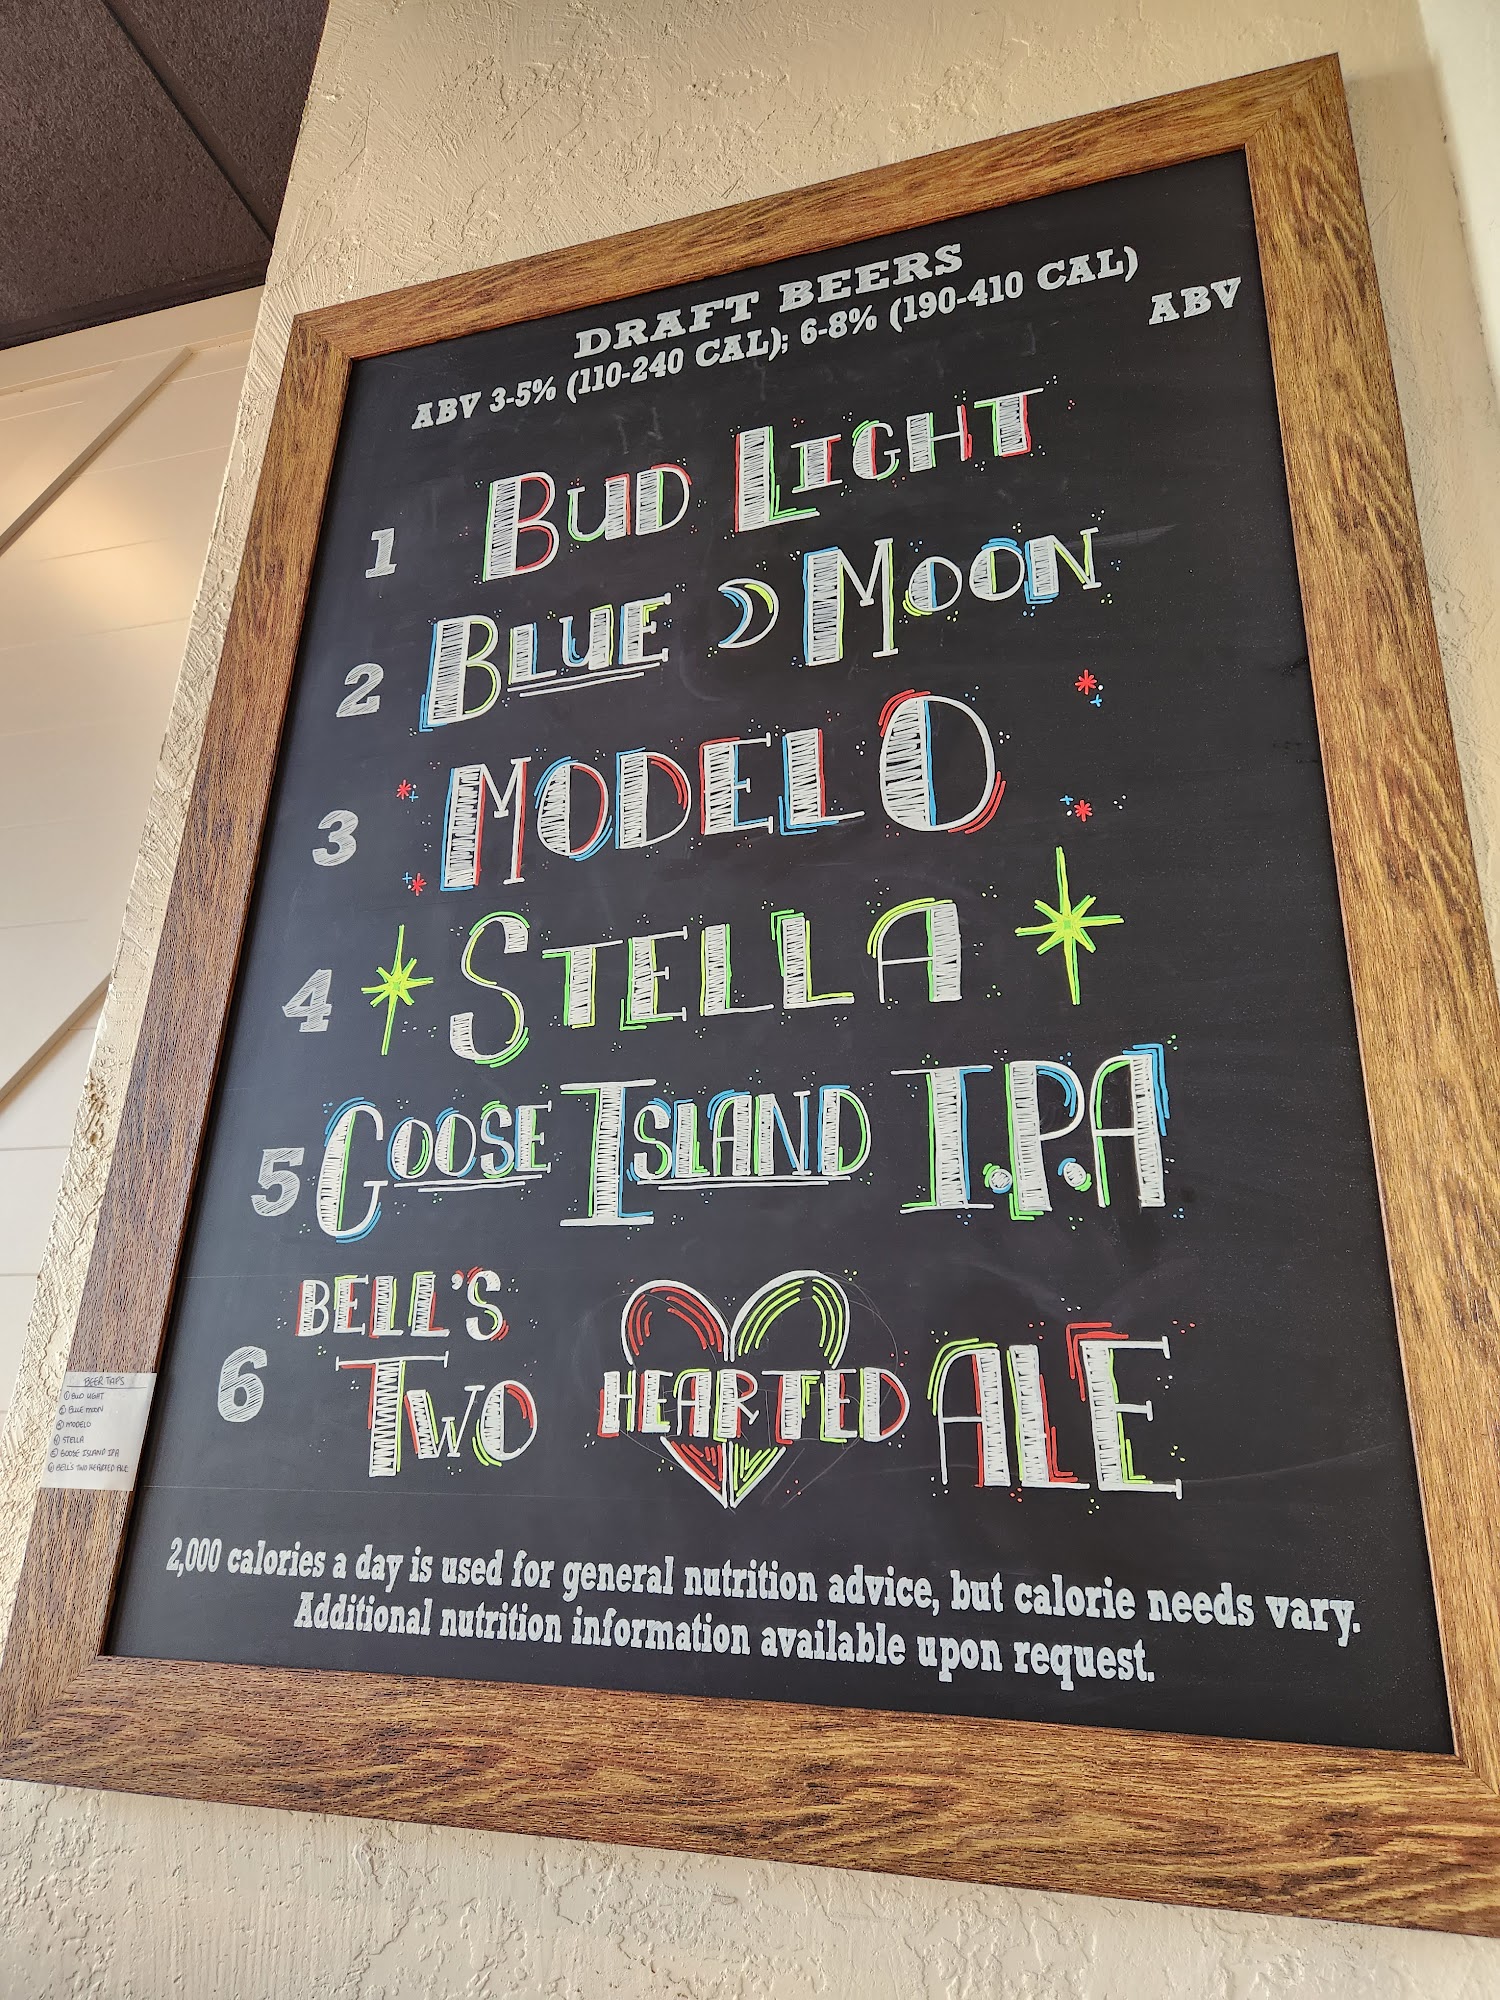 DRAFT BEERS
ABV 3-5% (110-240 CAL); 6-8% (190-410 CAL)
ABV
1 BUD LIGHT
2 BLUE MOON
3 MODELO
4 STELLA
5 GOOSE ISLAND I.P.A
6 BELL'S TWO HEARTED ALE
2,000 calories a day is used for general nutrition advice, but calorie needs vary.
Additional nutrition information available upon request.
BEER TAPS
1 BUD LIGHT
2 BLUE MOON
3 MODELO
4 STELLA
5 GOOSE ISLAND IPA
6 BELL'S TWO HEARTED ALE